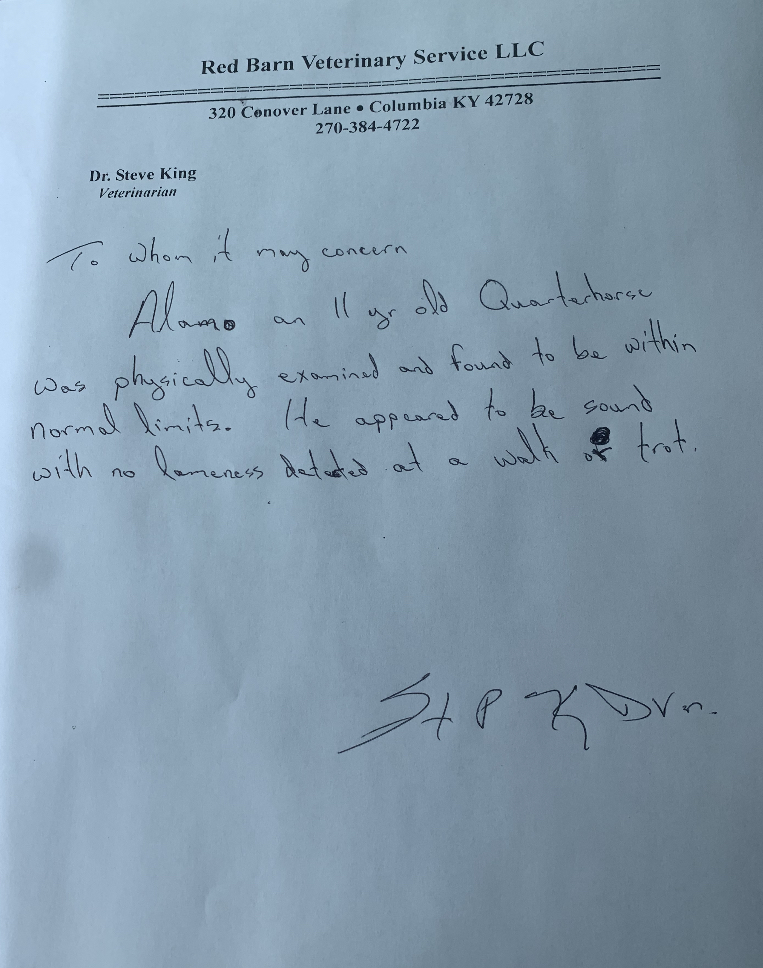 Red Barn Veterinary Service LLC
320 Conover Lane • Columbia KY 42728
270-384-4722
Dr. Steve King
Veterinarian
To whom it may concern
Alamo an 11 yr old Quarterhorse
was physically examined and found to be within
normal limits. He appeared to be sound
with no lameness detected at a walk or trot.
St P K DVM.